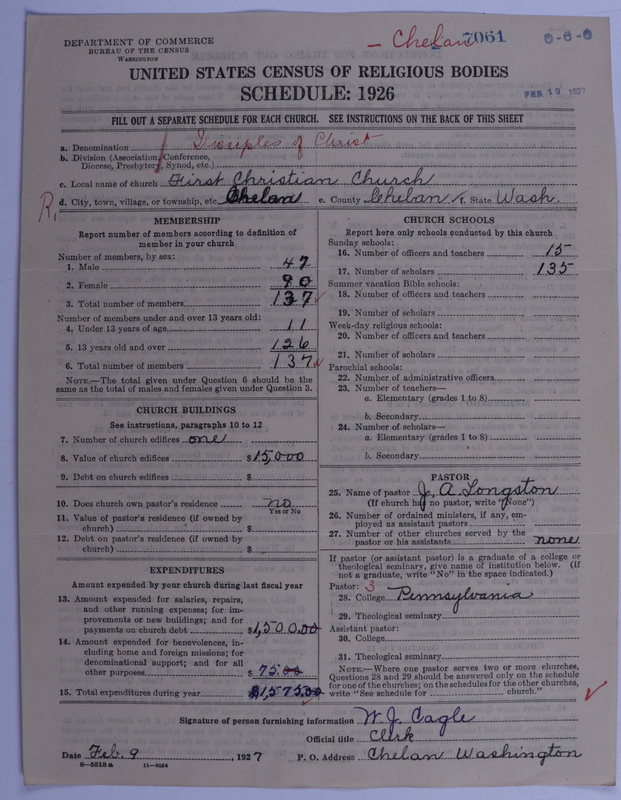 DEPARTMENT OF COMMERCE
BUREAU OF THE CENSUS
WASHINGTON
– Chelan 7061 0-6-6
UNITED STATES CENSUS OF RELIGIOUS BODIES
SCHEDULE: 1926
FEB 19 1927
FILL OUT A SEPARATE SCHEDULE FOR EACH CHURCH. SEE INSTRUCTIONS ON THE BACK OF THIS SHEET
a. Denomination Disciples of Christ
b. Division (Association, Conference,
Diocese, Presbytery, Synod, etc.)
c. Local name of church First Christian Church
R, d. City, town, village, or township, etc. Chelan e. County Chelan f. State Wash.
MEMBERSHIP
Report number of members according to definition of
member in your church
Number of members, by sex:
1. Male 47
2. Female 90
3. Total number of members 137 ✓
Number of members under and over 13 years old:
4. Under 13 years of age 11
5. 13 years old and over 126
6. Total number of members 137 ✓
NOTE.—The total given under Question 6 should be the
same as the total of males and females given under Question 3.
CHURCH BUILDINGS
See instructions, paragraphs 10 to 12
7. Number of church edifices one
8. Value of church edifices $15,000
9. Debt on church edifices $
10. Does church own pastor's residence no
Yes or No
11. Value of pastor's residence (if owned by
church) $
12. Debt on pastor's residence (if owned by
church) $
EXPENDITURES
Amount expended by your church during last fiscal year
13. Amount expended for salaries, repairs,
and other running expenses; for im-
provements or new buildings; and for
payments on church debt $1,500.00
14. Amount expended for benevolences, in-
cluding home and foreign missions; for
denominational support; and for all
other purposes $ 75.00
15. Total expenditures during year $1,575.00 ✓
CHURCH SCHOOLS
Report here only schools conducted by this church
Sunday schools:
16. Number of officers and teachers 15
17. Number of scholars 135
Summer vacation Bible schools:
18. Number of officers and teachers
19. Number of scholars
Week-day religious schools:
20. Number of officers and teachers
21. Number of scholars
Parochial schools:
22. Number of administrative officers
23. Number of teachers—
a. Elementary (grades 1 to 8)
b. Secondary
24. Number of scholars—
a. Elementary (grades 1 to 8)
b. Secondary
PASTOR
25. Name of pastor J. A. Longston
(If church has no pastor, write "None")
26. Number of ordained ministers, if any, em-
ployed as assistant pastors
27. Number of other churches served by the
pastor or his assistants none
If pastor (or assistant pastor) is a graduate of a college or
theological seminary, give name of institution below. (If
not a graduate, write "No" in the space indicated.)
Pastor: 3
28. College Pennsylvania
29. Theological seminary
Assistant pastor:
30. College
31. Theological seminary
NOTE.—Where one pastor serves two or more churches,
Questions 28 and 29 should be answered only on the schedule
for one of the churches; on the schedules for the other churches,
write "See schedule for church." ✓
Signature of person furnishing information W. J. Cagle
Official title Clerk
Date Feb. 9, 1927 P. O. Address Chelan Washington
8—5518a 11—9064